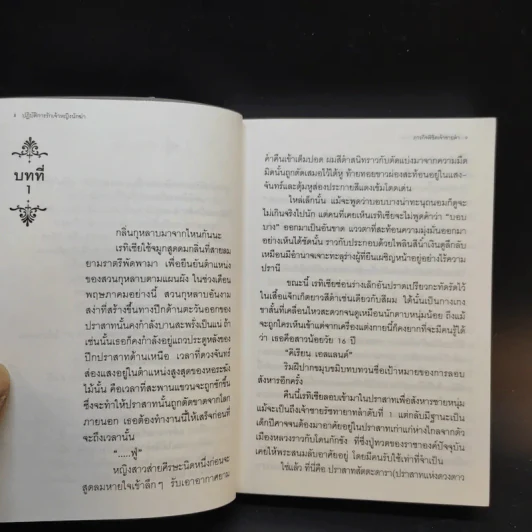 ปฏิบัติการรักเจ้าหญิงนักฆ่า
บทที่
1
กลิ่นกุหลาบมาจากไหนกันนะ
เรทิเซียใช้จมูกสูดดมกลิ่นที่สายลม
ยามราตรีพัดพามา เพื่อยืนยันตำแหน่ง
ของสวนกุหลาบตามแผนผัง ในช่วงเดือน
พฤษภาคมอย่างนี้ สวนกุหลาบอันงาม
สง่าที่สร้างขึ้นทางปีกด้านตะวันออกของ
ปราสาทนั้นคงกำลังบานสะพรั่งเป็นแน่ ถ้า
เช่นนั้นเธอก็คงกำลังอยู่แถวประตูหลังของ
ปีกปราสาทด้านเหนือ เวลาที่ดวงจันทร์
ส่องแสงอยู่ในตำแหน่งสูงสุดของหอระฆัง
ไม้นั้น คือเวลาที่สะพานแขวนจะถูกชักขึ้น
ซึ่งจะทำให้ปราสาทนั้นถูกตัดขาดจากโลก
ภายนอก เธอต้องทำงานนี้ให้เสร็จก่อนที่
จะถึงเวลานั้น
".....ฟู่"
หญิงสาวส่ายศีรษะนิดหนึ่งก่อนจะ
สูดลมหายใจเข้าลึกๆ รับเอาอากาศยาม
ค่ำคืนเข้าเต็มปอด ผมสีดำสนิทราวกับตัดแบ่งมาจากความมืด
มิดนั้นถูกตัดเสมอไว้ใต้หู ท้ายทอยขาวผ่องสะท้อนอยู่ในแสง-
จันทร์และตุ้มหูส่องประกายสีแดงเข้มโดดเด่น
ไหล่เล็กนั้น แม้จะพูดว่าบอบบางน่าทะนุถนอมก็ดูจะ
ไม่เกินจริงไปนัก แต่คนที่เคยเห็นเรทิเซียจะไม่พูดคำว่า "บอบ
บาง" ออกมาเป็นอันขาด แววตาที่สะท้อนความมุ่งมั่นออกมา
อย่างเห็นได้ชัดนั้น ราวกับประกอบด้วยไพลินสีน้ำเงินดูลึกลับ
เหมือนมีอำนาจเจาะทะลุร่างผู้ที่ยืนเผชิญหน้าอยู่อย่างไร้ความ
ปรานี
ขณะนี้ เรทิเซียซ่อนร่างเล็กอันปราดเปรียวกะทัดรัดไว้
ในเสื้อแจ็กเกตยาวสีดำเช่นเดียวกับสีผม ใต้นั้นเป็นกางเกง
ขาสั้นที่เคลื่อนไหวสะดวกจนดูเหมือนนักดาบหนุ่มน้อย ถึงแม้
จะถูกใครเห็นเข้าแต่จากเครื่องแต่งกายนี้ก็คงยากที่จะมีคนรู้ได้
ว่า เธอคือสาวน้อยวัย 16 ปี
"คิเรียน เอลแลนด์"
ริมฝีปากขมุบขมิบทบทวนชื่อเป้าหมายของการลอบ
สังหารอีกครั้ง
คืนนี้เรทิเซียลอบเข้ามาในปราสาทเพื่อสังหารชายหนุ่ม
แม้จะเป็นถึงเจ้าชายรัชทายาทลำดับที่ 1 แต่กลับมีฐานะเป็น
เด็กปีศาจจนต้องมาอาศัยอยู่ในปราสาทเก่าแก่ห่างไกลจากตัว
เมืองหลวงราวกับโดนกักขัง ที่ซึ่งปู่ทวดของราชาองค์ปัจจุบัน
เคยให้พระสนมลับอาศัยอยู่ โดยมีคนรับใช้เท่าที่จำเป็น
ใช่แล้ว ที่นี่คือ ปราสาทลัตตะดารา(ปราสาทแห่งดวงดาว